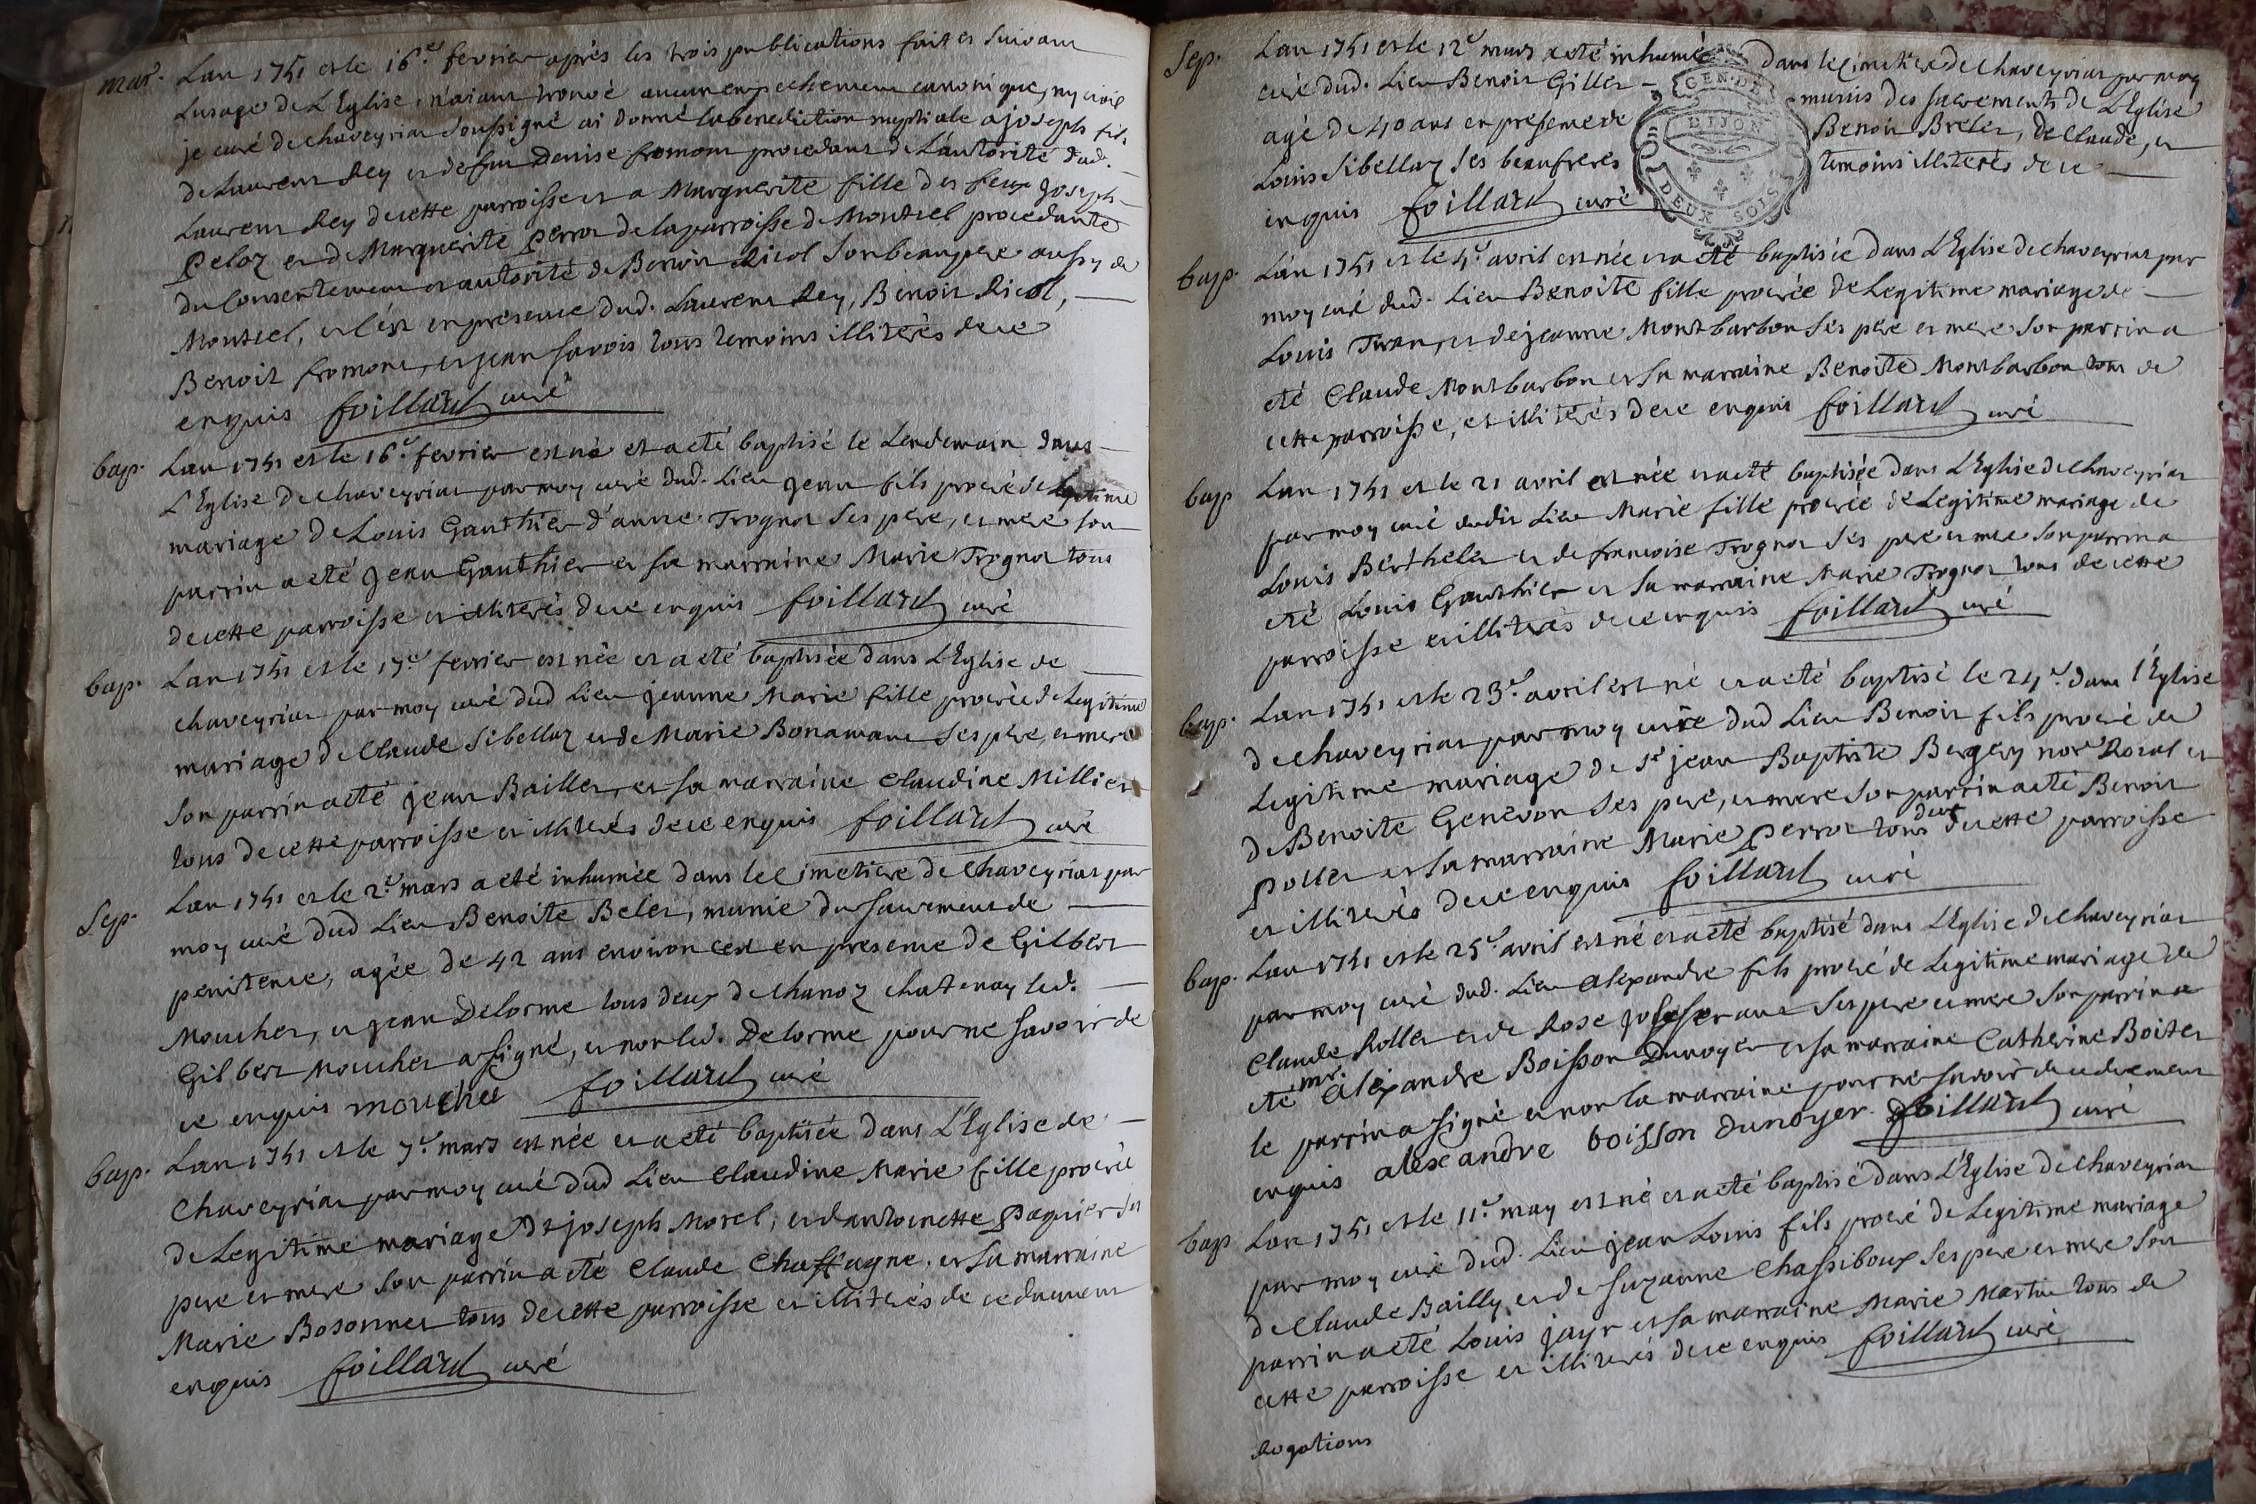 mar. Lan 1751 et le 16e. fevrier après les trois publications faites suivant
Lusage de L'Eglise, n'aiant trouvé aucun empechement canonique, ny civil
je curé de chaveyriat soussigné ai donné la benediction nuptiale a joseph fils
de Laurent Rey et de fut Denise fromont procedant de L'autorité dud.
Laurent Rey de cette parroisse et a Marguerite fille des feux joseph
Peloz et de Marguerite Perrot de la parroisse de Montcel procedante
du Consentement et autorité de Benoit Ricol son beaupere aussy de
Montcel, et c'est en presence dud. Laurent Rey, Benoit Ricol,
Benoit fromont, et jean favois tous temoins illiterés de ce
enquis foillard curé
bap. Lan 1751 et le 16e. fevrier est né et a eté baptisé le Lendemain dans
L'Eglise de chaveyriat par moy curé dud. Lieu jean fils procréé de Legitime
mariage de Louis Gauthier d'anne Trognot ses père, et mere son
parrin a eté jean Gauthier et sa marraine Marie Trognot tous
de cette parroisse et illiterés de ce enquis foillard curé
bap. Lan 1751 et le 17e. fevrier est née et a eté baptisée dans L'Eglise de
chaveyriat par moy curé dud Lieu jeanne Marie fille procréée de Legitime
mariage de Claude Sibellaz et de Marie Bonamant ses père, et mere
son parrin a eté jean Baillet, et sa marraine Claudine Millier
tous de cette parroisse et illiterés de ce enquis foillard curé
Sep. Lan 1751 et le 2e. mars a eté inhumée dans le Cimetiere de Chaveyriat par
moy curé dud Lieu Benoite Belet, munie du sacrement de
penitence, agée de 42 ans environ c'est en presence de Gilbert
Mouchet, et jean Delorme tous deux de chanoz chatenay led.
Gilbert Mouchet a signé, et non led. Delorme pour ne savoir de
ce enquis mouchet foillard curé
bap. Lan 1751 et le 7e. mars est née et a eté baptisée dans L'Eglise de
Chaveyriat par moy curé dud Lieu Claudine Marie fille procréée
de Legitime mariage De joseph Morel, et d'antoinette Paquier ses
pere et mere son parrin a eté Claude Chaffagne, et sa marraine
Marie Bosonnet tous de cette parroisse et illiterés de ce duement
enquis foillard curé
Sep. Lan 1751 et le 12e mars a eté inhumé dans le Cimetiere de chaveyriat par moy
curé dud. Lieu Benoit Gillet munis des sacrements de L'Eglise
agé de 40 ans en presence de Benoit Brelet, de Claude, et
Louis Sibellaz ses beaufreres temoins illiterés de ce
enquis foillard curé
GEN. DE
DIJON
DEUX SOLS
bap. Lan 1751 et le 4e. avril est née et a eté baptisée dans L'Eglise de chaveyriat par
moy curé dud. Lieu Benoite fille procréée de Legitime mariage de
Louis Tiran, et de jeanne Montbarbon ses père et mere son parrin a
eté Claude Montbarbon et sa marraine Benoite Montbarbon tous de
cette parroisse, et illiterés de ce enquis foillard curé
bap Lan 1751 et le 21 avril est née et a eté baptisée dans L'Eglise de chaveyriat
par moy curé dudit Lieu Marie fille procréée de Legitime mariage de
Louis Berthelet et de francoise Trognot ses pere et mere son parrin a
eté Louis Gauthier et sa marraine Marie Trognot tous de cette
parroisse et illiterés de ce enquis foillard curé
bap. Lan 1751 et le 23e. avril est né et a eté baptisé le 24e. dans l'Eglise
de chaveyriat par moy curé dud Lieu Benoit fils procréé de
Legitime mariage de sr jean Baptiste Bergery nore Roial et
de Benoite Genevon ses pere, et mere son parrin a eté Benoit
Pollet et sa marraine Marie Perrot tous deux de cette parroisse
et illiterés de ce enquis foillard curé
bap. Lan 1751 et le 25e. avril est né et a eté baptisé dans L'Eglise de Chaveyriat
par moy curé dud. Lieu alexandre fils procréé de Legitime mariage de
Claude Rollet et de Rose ses pere et mere son parrin a
eté mr. alexandre Boisson Dunoyer et sa marraine Catherine Boitet
le parrin a signé et non la marraine pour ne savoir de ce duement
enquis alexandre boisson dunoyer foillard curé
bap Lan 1751 et le 11e. may est né et a eté baptisé dans L'Eglise de Chaveyriat
par moy curé dud. Lieu jean Louis fils procréé de Legitime mariage
de Claude Bailly, et de suzanne Chassiboux ses pere et mere son
parrin a eté Louis jayr et sa marraine Marie Martin tous de
cette parroisse et illiterés de ce enquis foillard curé
rogations